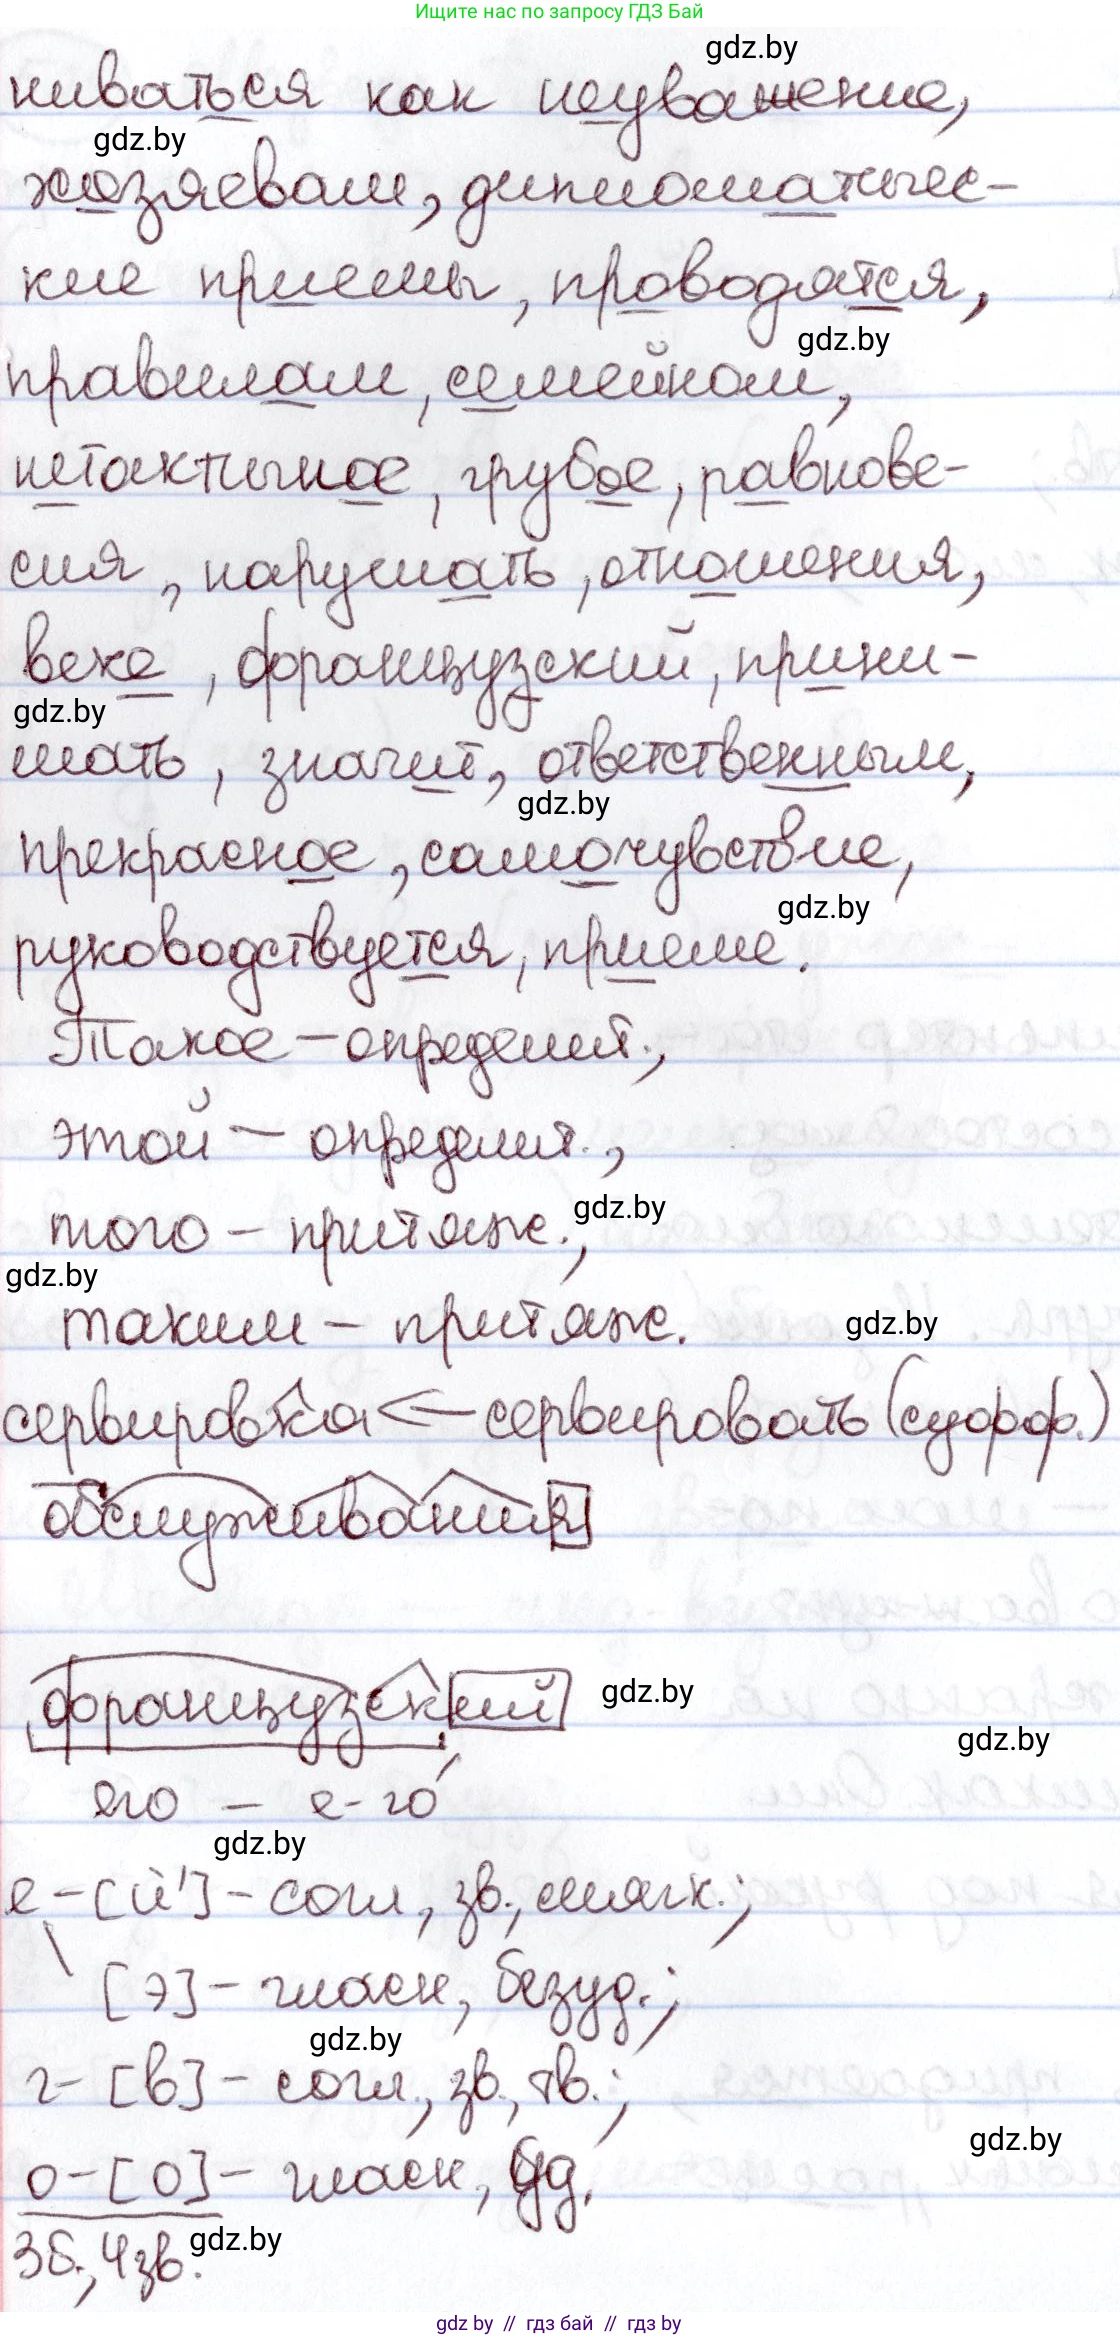 Ищите нас по запросу ГДЗ Бай
gdz.by
ниваться как неуважение,
gdz.by
хозяевам, дипломатичес-
кие приемы, проводятся,
gdz.by
правилам, семейном,
нетактичное, грубое, равнове-
сия, нарушать, отношения,
веке, французский, прини-
gdz.by
мать, значит, ответственным,
gdz.by
прекрасное, самочувствие,
gdz.by
руководствуется, приеме.
Такое – определит.,
этой – определит.,
gdz.by
того – притяж.,
gdz.by
таким – притяж.
gdz.by
сервировка <– сервировать (суфф.)
обслуживания
gdz.by
французский
gdz.by
его – е-го́
gdz.by
е – [й'] – согл., зв., мягк.;
\ [э] – гласн., безуд.;
gdz.by
г – [в] – согл., зв., тв.;
gdz.by
о – [о] – гласн., уд.
3б., 4зв.
gdz.by
gdz by // гдз бай // гдз by